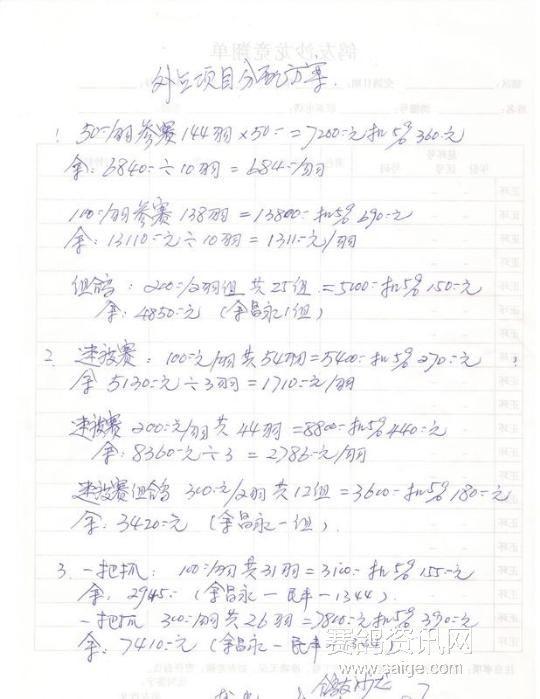 外点项目分配方案.
1. 50=/羽参赛144羽×50==7200元扣5%360元
余:6840=÷10羽=684=/羽
100=/羽参赛138羽=13800=扣5%690元
余:13110元÷10羽=1311元/羽
组鸽:200=/2羽组共25组=5000=扣5%150元
余:4850元(余昌永1组)
2. 速波赛:100元/羽共54羽=5400=扣5%270元
余5130元÷3羽=1710元/羽
速波赛200元/羽共44羽=8800=扣5%440元
余:8360元÷3=2786元/羽
速波赛组鸽300元/2羽共12组=3600=扣5%180元
余:3420元(余昌永一组).
3. 一把抓:100=/羽共31羽=3100=扣5%155元
余:2945=(余昌永一民丰一1344).
一把抓300=/羽共26羽=7800元扣5%390元
余:7410元(余昌永一民丰
赛鸽资讯网
www.saige.com